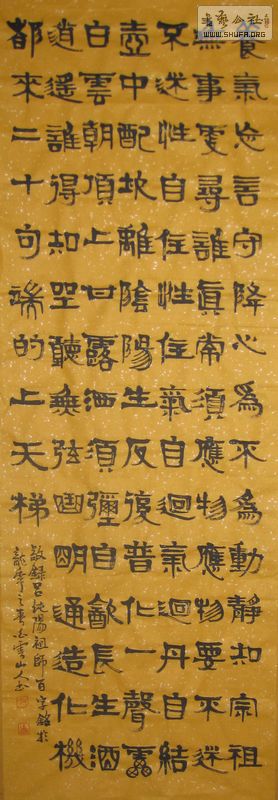 书艺公社
WWW.SHUFA.ORG
養氣忘言守降心為不為動靜知宗祖
無事更尋誰真常須應物應物要不迷
不迷性自住性住氣自迴氣迴丹自結
壺中配坎離陰陽生反復普化一聲雷
白雲朝頂上甘露洒須彌自飲長生酒
逍遙誰得知坐聽無弦曲明通造化機
都來二十句端的上天梯
敬錄呂純陽祖師百字銘於
龍年之春雲山人書